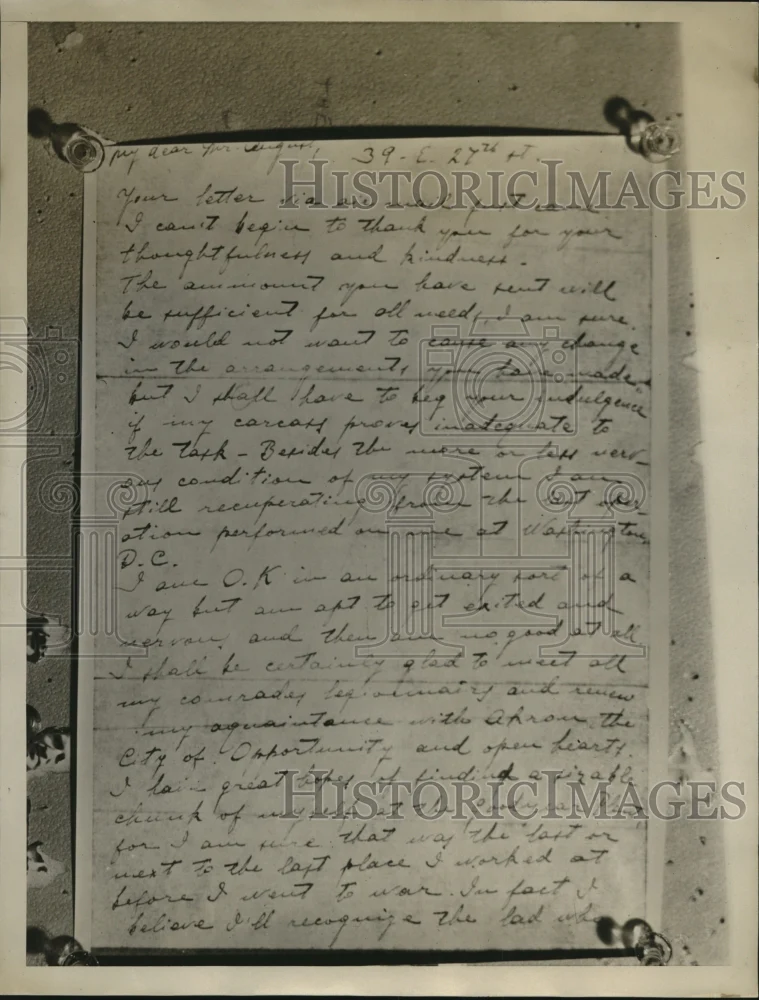 My dear Mr. August, 39 - E. 27th st.
HISTORICIMAGES
Your letter via air mail just
I can't begin to thank you for your
thoughtfulness and kindness.
The ammount you have sent will
be sufficient for all needs, I am sure.
I would not want to cause any change
in the arrangements you have made
but I shall have to beg your indulgence
if my carcass proves inadequate to
the task - Besides the more or less nerv-
ous condition of my system I am
still recuperating from the last oper-
ation performed on me at Washington,
D.C.
I am O.K in an ordinary sort of a
way but am apt to get exited and
nervous, and then am no good at all
I shall be certainly glad to meet all
my comrades legionnairs and renew
my aquaintance with Akron, the
City of Opportunity and open hearts.
I have great hopes of finding a sizable
HISTORICIMAGES
chunk of myself at the Goodyear Plant,
for I am sure that was the last or
next to the last place I worked at
before I went to war. In fact I
believe I'll recognize the lad who